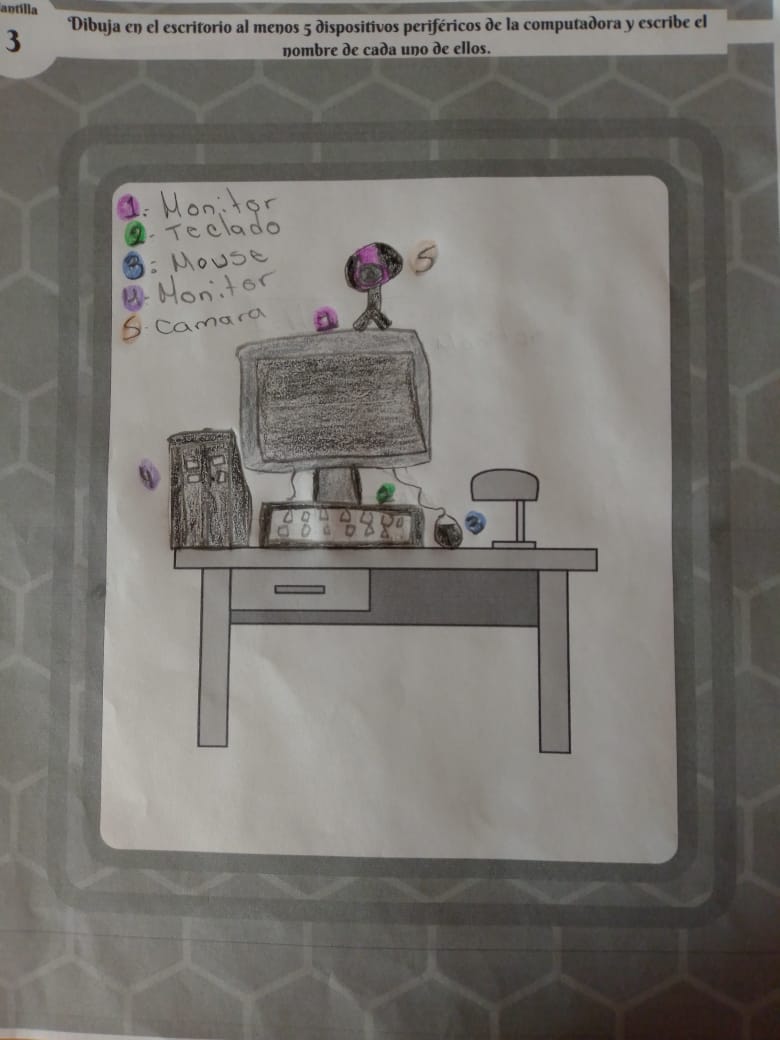 antilla
3
Dibuja en el escritorio al menos 5 dispositivos periféricos de la computadora y escribe el
nombre de cada uno de ellos.
1: Monitor
2- Teclado
3: Mouse
4- Monitor
5- Camara
5
1
4
2
3